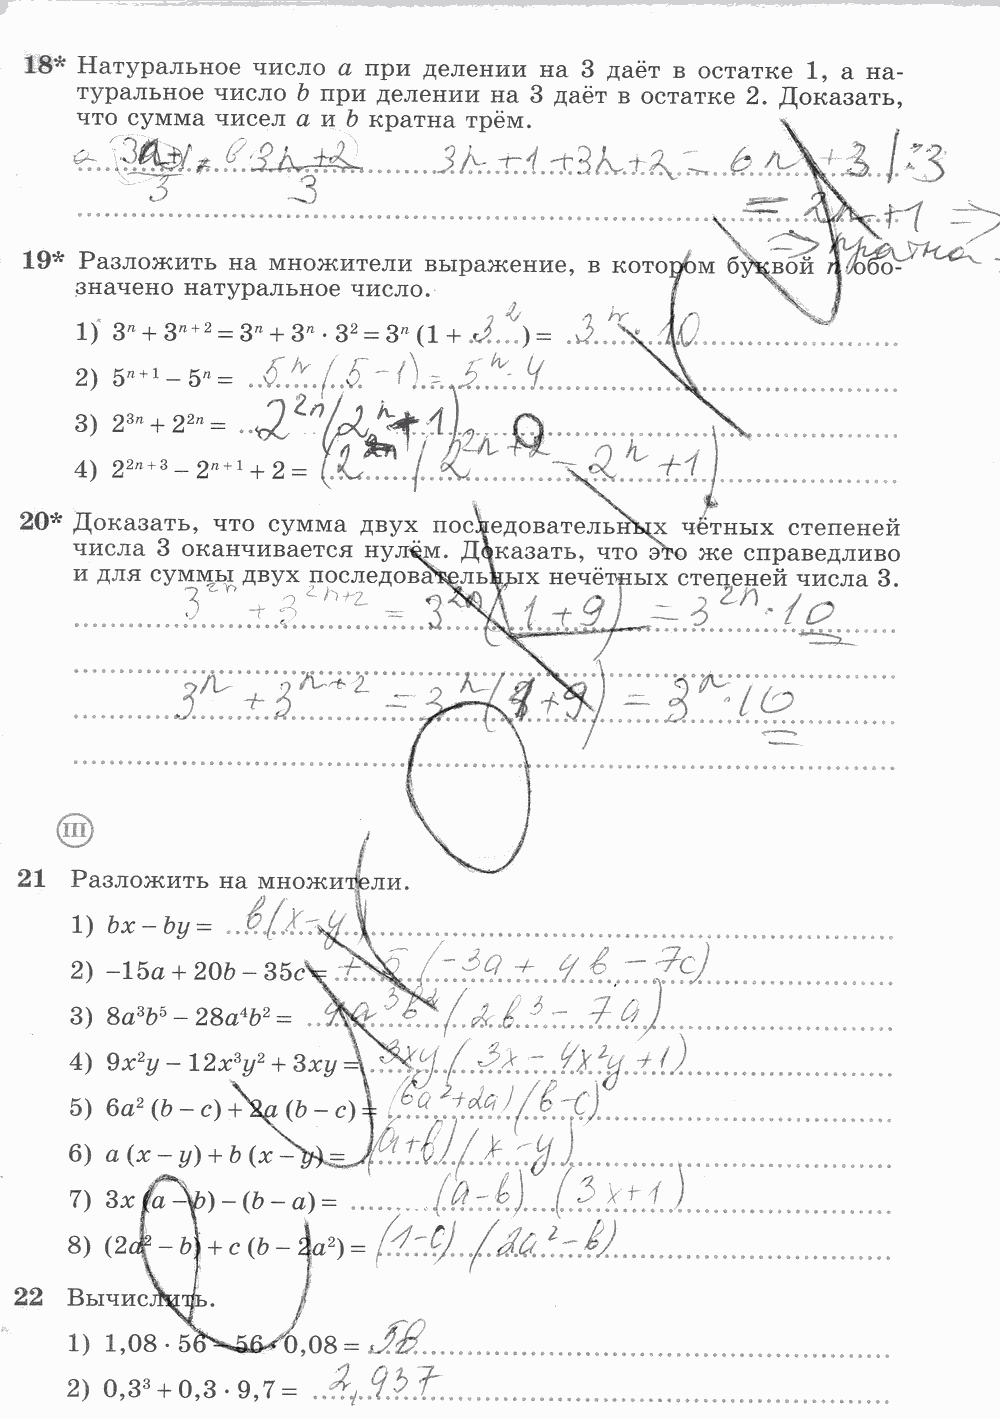 18* Натуральное число a при делении на 3 даёт в остатке 1, а на-
туральное число b при делении на 3 даёт в остатке 2. Доказать,
что сумма чисел a и b кратна трём.
3n+1+3n+2 = 6n+3 | :3
= 2n+1 ⇒
⇒ кратна
19* Разложить на множители выражение, в котором буквой n обо-
значено натуральное число.
1) 3ⁿ + 3ⁿ⁺² = 3ⁿ + 3ⁿ · 3² = 3ⁿ (1 + 3²) = 3ⁿ · 10
2) 5ⁿ⁺¹ – 5ⁿ = 5ⁿ (5 – 1) = 5ⁿ · 4
3) 2³ⁿ + 2²ⁿ = 2²ⁿ (2ⁿ + 1)
4) 2²ⁿ⁺³ – 2ⁿ⁺¹ + 2 = (2²ⁿ⁺² – 2ⁿ + 1)
20* Доказать, что сумма двух последовательных чётных степеней
числа 3 оканчивается нулём. Доказать, что это же справедливо
и для суммы двух последовательных нечётных степеней числа 3.
3²ⁿ + 3²ⁿ⁺² = 3²ⁿ (1 + 9) = 3²ⁿ · 10
3ⁿ + 3ⁿ⁺² = 3ⁿ (1 + 9) = 3ⁿ · 10
III
21 Разложить на множители.
1) bx – by = b(x – y)
2) –15a + 20b – 35c = + 5 (–3a + 4b – 7c)
3) 8a³b⁵ – 28a⁴b² = 4a³b² (2b³ – 7a)
4) 9x²y – 12x³y² + 3xy = 3xy (3x – 4x²y + 1)
5) 6a² (b – c) + 2a (b – c) = (6a² + 2a) (b – c)
6) a (x – y) + b (x – y) = (a + b) (x – y)
7) 3x (a – b) – (b – a) = (a – b) (3x + 1)
8) (2a² – b) + c (b – 2a²) = (1 – c) (2a² – b)
22 Вычислить.
1) 1,08 · 56 – 56 · 0,08 =
2) 0,3³ + 0,3 · 9,7 = 2,937